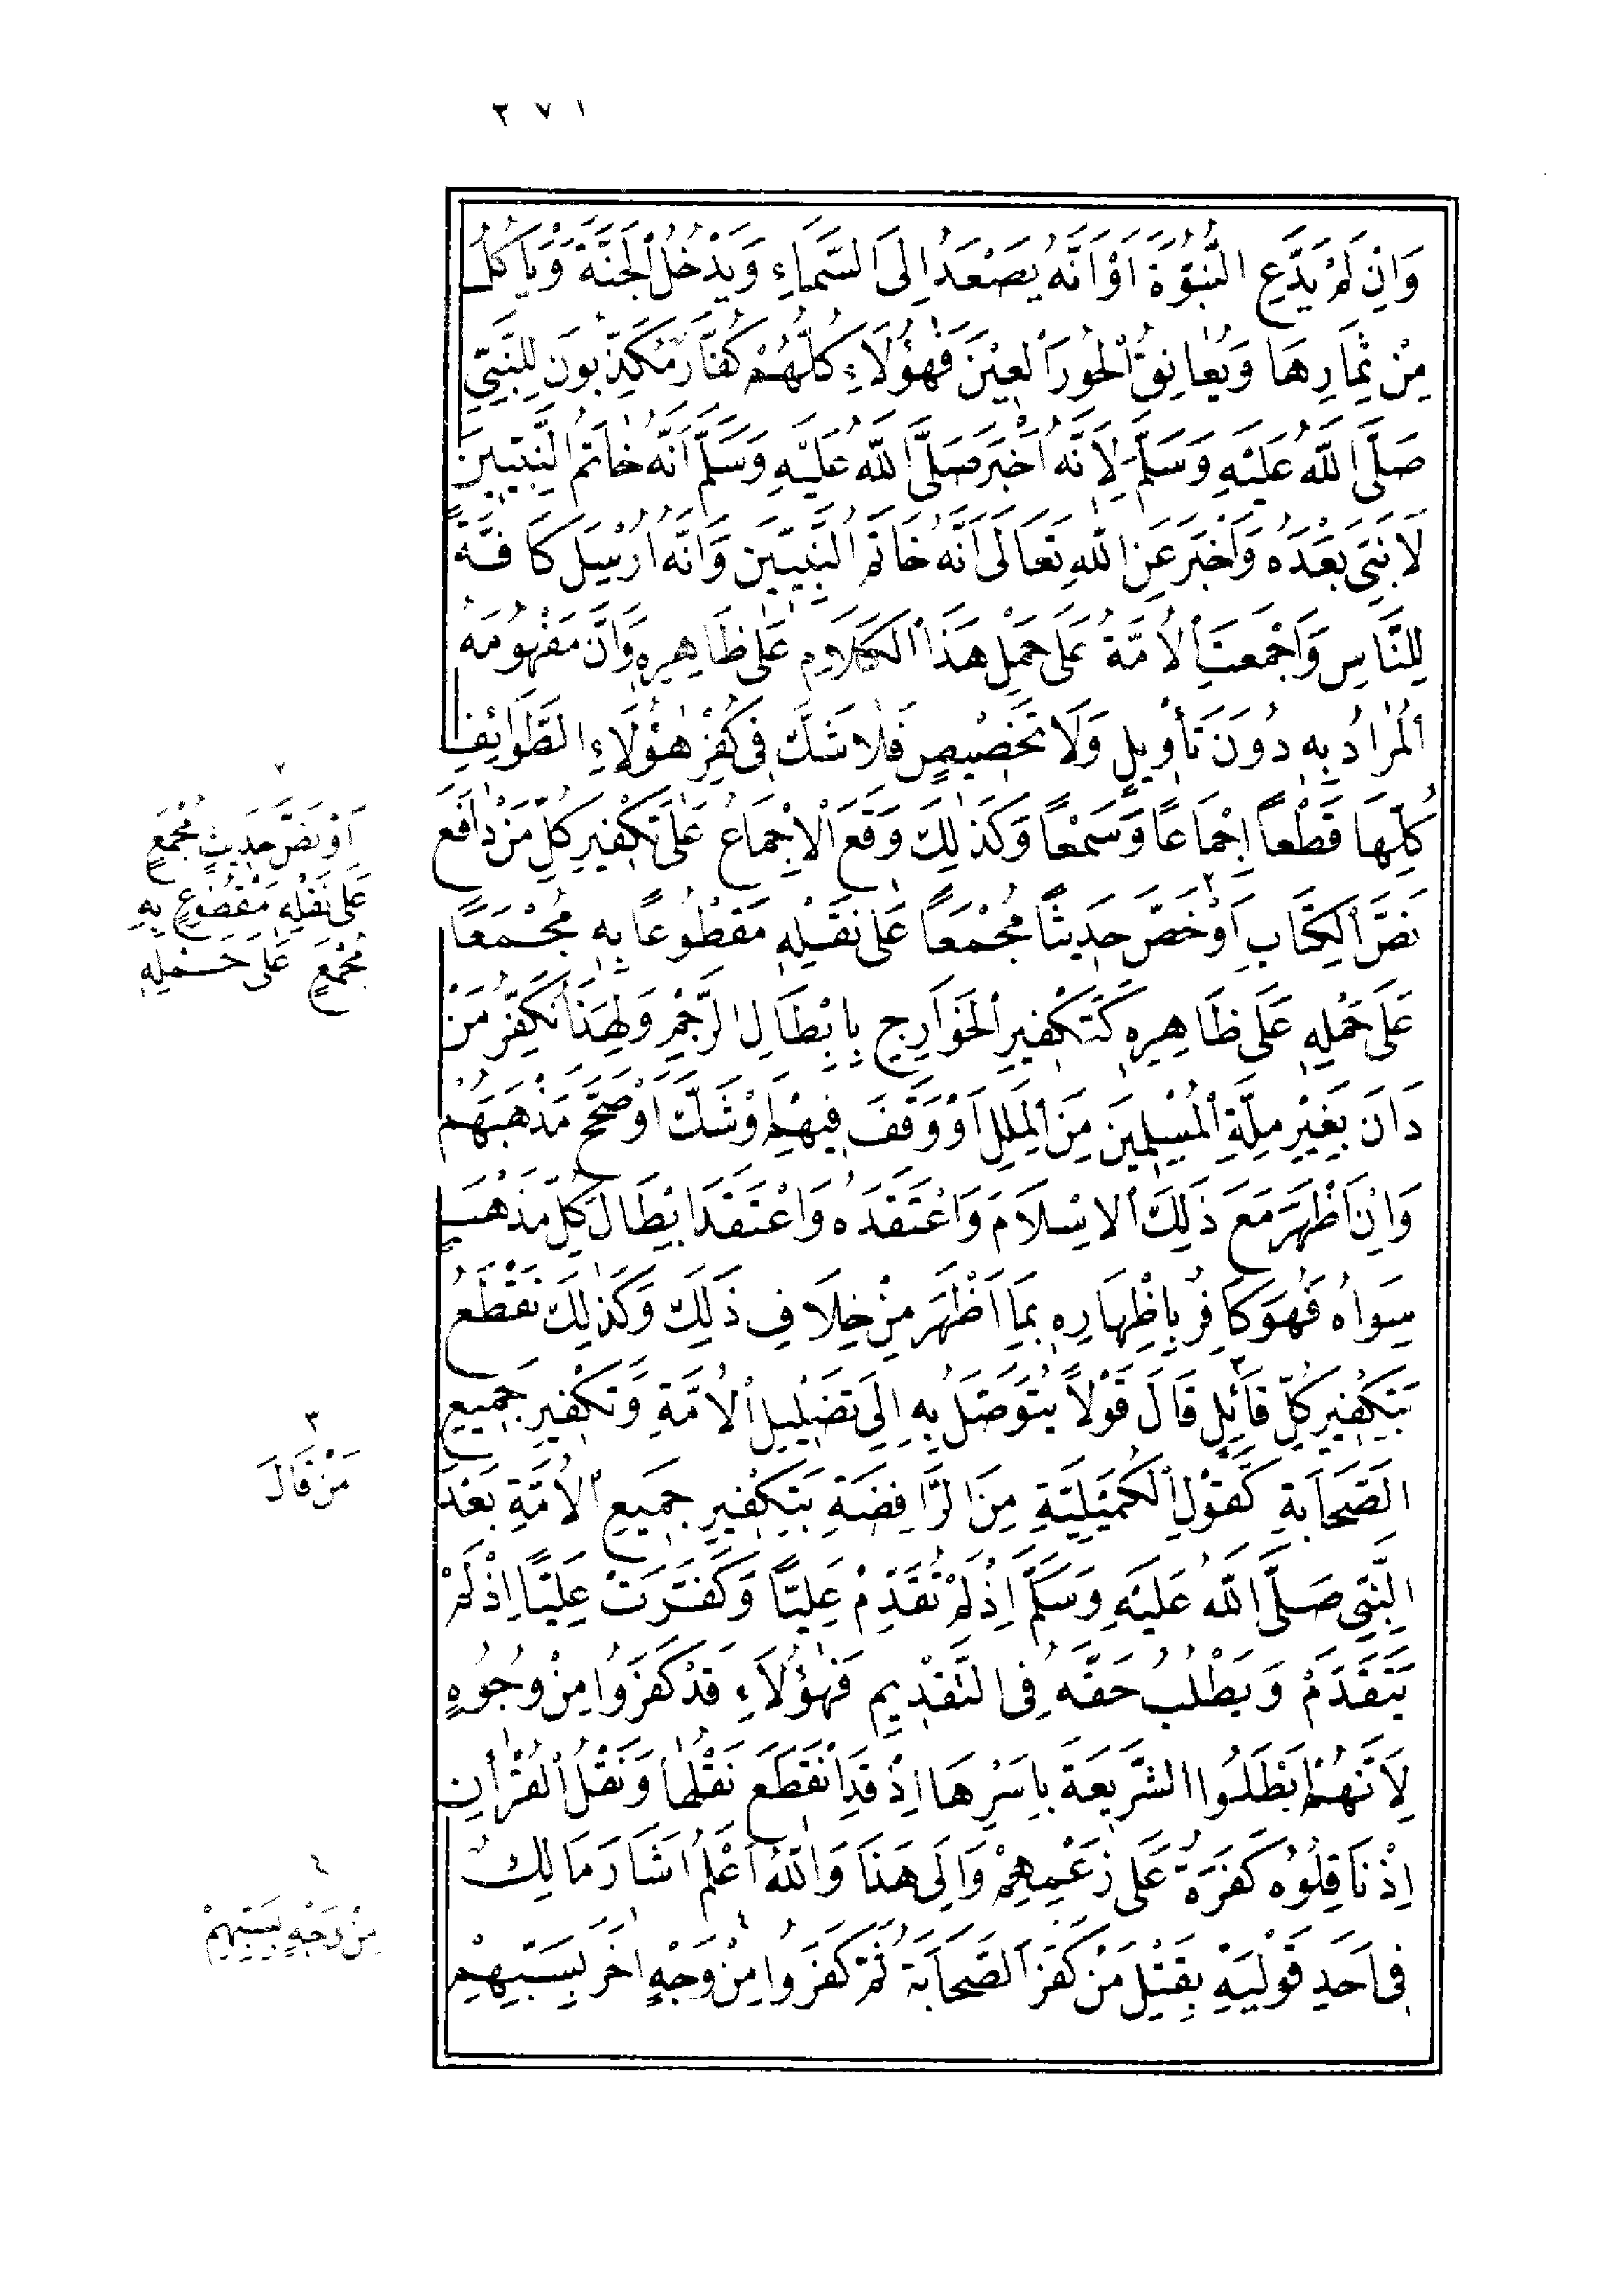 ٢٧١
وَاِنْ لَمْ يَدَّعِ النُّبُوَّةَ اَوْ اَنَّهُ يَصْعَدُ اِلَى السَّمَاءِ وَيَدْخُلُ الْجَنَّةَ وَيَأْكُلُ
مِنْ ثِمَارِهَا وَيُعَانِقُ الْحُورَ الْعِينَ فَهٰؤُلَاءِ كُلُّهُمْ كُفَّارٌ مُكَذِّبُونَ لِلنَّبِيِّ
صَلَّى اللّٰهُ عَلَيْهِ وَسَلَّمَ لِاَنَّهُ اَخْبَرَ صَلَّى اللّٰهُ عَلَيْهِ وَسَلَّمَ اَنَّهُ خَاتَمُ النَّبِيِّينَ
لَا نَبِيَّ بَعْدَهُ وَاَخْبَرَ عَنِ اللّٰهِ تَعَالَى اَنَّهُ خَاتَمُ النَّبِيِّينَ وَاَنَّهُ اُرْسِلَ كَافَّةً
لِلنَّاسِ وَاَجْمَعَتِ الْاُمَّةُ عَلَى حَمْلِ هَذَا الْكَلَامِ عَلَى ظَاهِرِهِ وَاَنَّ مَفْهُومَهُ
الْمُرَادُ بِهِ دُونَ تَأْوِيلٍ وَلَا تَخْصِيصٍ فَلَا شَكَّ فِى كُفْرِ هٰؤُلَاءِ الطَّوَائِفِ
كُلِّهَا قَطْعاً اِجْمَاعاً وَسَمْعاً وَكَذَلِكَ وَقَعَ الْاِجْمَاعُ عَلَى تَكْفِيرِ كُلِّ مَنْ دَافَعَ
نَصَّ الْكِتَابِ اَوْ خَصَّ حَدِيثاً مُجْمَعاً عَلَى نَقْلِهِ مَقْطُوعاً بِهِ مُجْمَعاً
عَلَى حَمْلِهِ عَلَى ظَاهِرِهِ كَتَكْفِيرِ الْخَوَارِجِ بِاِبْطَالِ الرَّجْمِ وَلِهَذَا نُكَفِّرُ مَنْ
دَانَ بِغَيْرِ مِلَّةِ الْمُسْلِمِينَ مِنَ الْمِلَلِ اَوْ وَقَفَ فِيهِمْ اَوْ شَكَّ اَوْ صَحَّحَ مَذْهَبَهُمْ
وَاِنْ اَظْهَرَ مَعَ ذَلِكَ الْاِسْلَامَ وَاعْتَقَدَهُ وَاعْتَقَدَ اِبْطَالَ كُلِّ مَذْهَبٍ
سِوَاهُ فَهُوَ كَافِرٌ بِاِظْهَارِهِ بِمَا اَظْهَرَ مِنْ خِلَافِ ذَلِكَ وَكَذَلِكَ نَقْطَعُ
بِتَكْفِيرِ كُلِّ قَائِلٍ قَالَ قَوْلاً يُتَوَصَّلُ بِهِ اِلَى تَضْلِيلِ الْاُمَّةِ وَتَكْفِيرِ جَمِيعِ
الصَّحَابَةِ كَقَوْلِ الْكُمَيْلِيَّةِ مِنَ الرَّافِضَةِ بِتَكْفِيرِ جَمِيعِ الْاُمَّةِ بَعْدَ
النَّبِيِّ صَلَّى اللّٰهُ عَلَيْهِ وَسَلَّمَ اِذْ لَمْ تُقَدِّمْ عَلِيّاً وَكَفَّرَتْ عَلِيّاً اِذْ لَمْ
يَتَقَدَّمْ وَيَطْلُبُ حَقَّهُ فِى التَّقْدِيمِ فَهٰؤُلَاءِ قَدْ كَفَرُوا مِنْ وُجُوهٍ
لِاَنَّهُمْ اَبْطَلُوا الشَّرِيعَةَ بِاَسْرِهَا اِذْ قَدِ انْقَطَعَ نَقْلُهَا وَنَقْلُ الْقُرْاٰنِ
اِذْ نَاقِلُوهُ كَفَرَةٌ عَلَى زَعْمِهِمْ وَاِلَى هَذَا وَاللّٰهُ اَعْلَمُ اَشَارَ مَالِكٌ
فِى اَحَدِ قَوْلَيْهِ بِقَتْلِ مَنْ كَفَّرَ الصَّحَابَةَ ثُمَّ كَفَرُوا مِنْ وَجْهٍ اٰخَرَ بِسَبِّهِمْ
٢
اَوْ نَصَّ حَدِيثٍ مُجْمَعٍ
عَلَى نَقْلِهِ مَقْطُوعٍ بِهِ
مُجْمَعٍ عَلَى حَمْلِهِ
٣
مَنْ قَالَ
٤
مِنْ وَجْهٍ بِسَبِّهِمْ